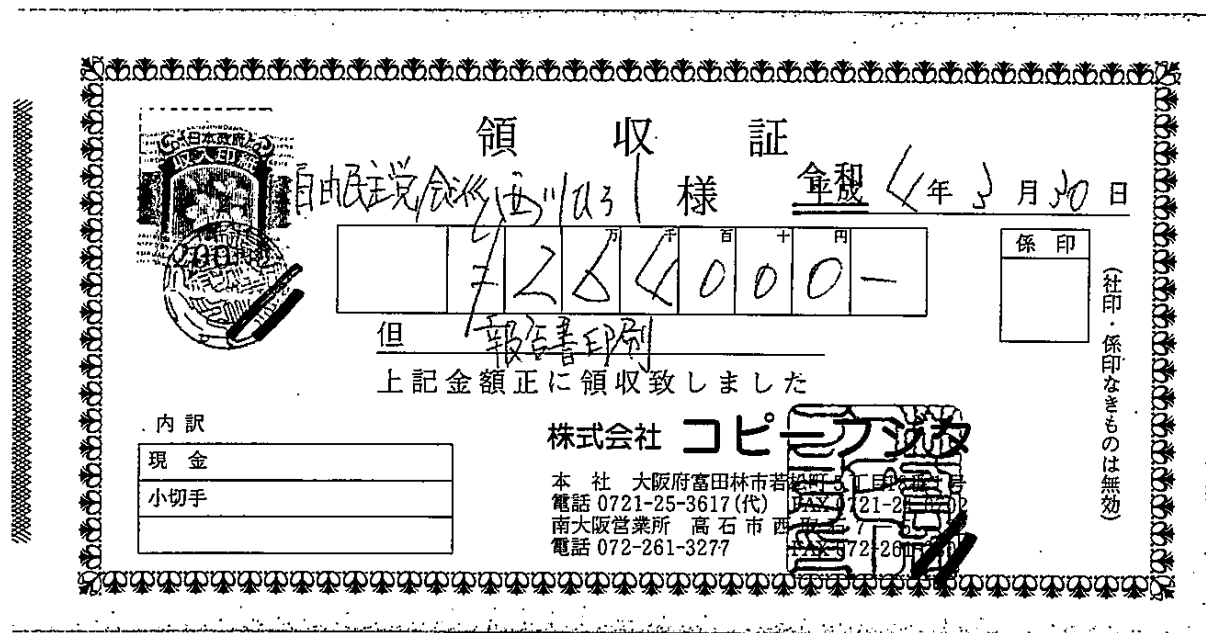 領収証
日本政府
収入印紙
200
自由民主党 西川ひろし 様
令和 4年3月30日
万 千 百 十 円
264000-
係印
但 報告書印刷
上記金額正に領収致しました
(社印・係印なきものは無効)
内訳
現金
小切手
株式会社 コピーフジタ
本社 大阪府富田林市若松町
電話 0721-25-3617(代) FAX 0721-2
南大阪営業所 高石市西取石7
電話 072-261-3277 FAX 072-261